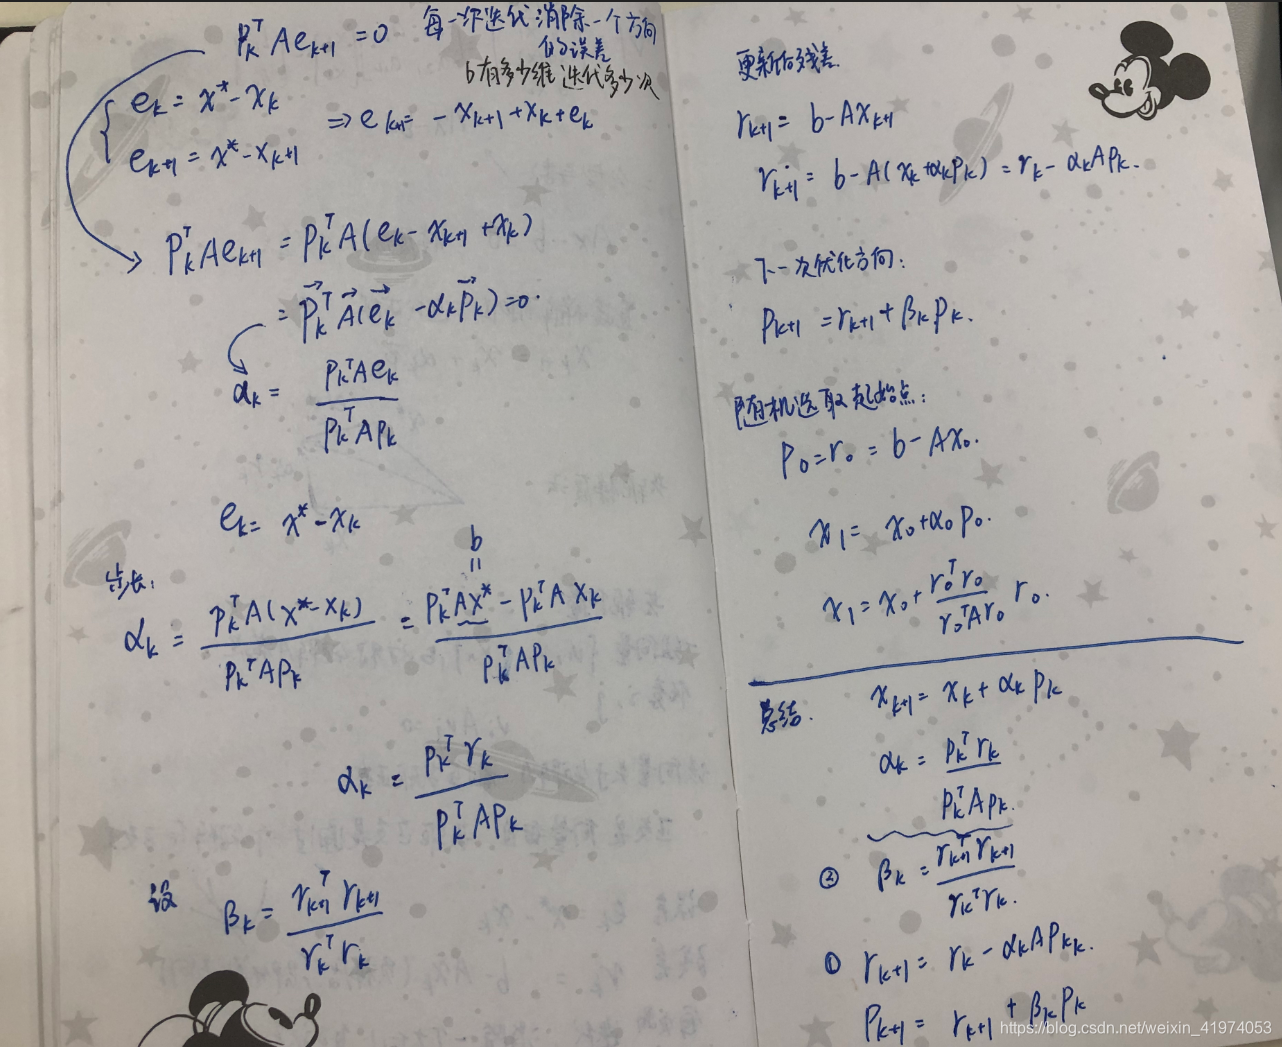 P_k^T A e_{k+1} = 0 每一次迭代消除一个方向
的误差
b有多少维 迭代多少次
e_k = x^* - x_k
⇒ e_{k+1} = -x_{k+1} + x_k + e_k
e_{k+1} = x^* - x_{k+1}
P_k^T A e_{k+1} = P_k^T A(e_k - x_{k+1} + x_k)
= P_k^T A(e_k - α_k P_k) = 0.
α_k = P_k^T A e_k / P_k^T A P_k
e_k = x^* - x_k
b
॥
步长:
α_k = P_k^T A(x^* - x_k) / P_k^T A P_k = P_k^T A x^* - P_k^T A x_k / P_k^T A P_k
α_k = P_k^T r_k / P_k^T A P_k
设 β_k = r_{k+1}^T r_{k+1} / r_k^T r_k
更新的残差
r_{k+1} = b - A x_{k+1}
r_{k+1} = b - A(x_k + α_k P_k) = r_k - α_k A P_k.
下一次优化方向:
P_{k+1} = r_{k+1} + β_k P_k.
随机选取起始点:
P_0 = r_0 = b - A x_0.
x_1 = x_0 + α_0 P_0.
x_1 = x_0 + r_0^T r_0 / r_0^T A r_0 r_0.
总结. x_{k+1} = x_k + α_k P_k
α_k = P_k^T r_k / P_k^T A P_k.
② β_k = r_{k+1}^T r_{k+1} / r_k^T r_k.
① r_{k+1} = r_k - α_k A P_{kk}.
P_{k+1} = r_{k+1} + β_k P_k
https://blog.csdn.net/weixin_41974053